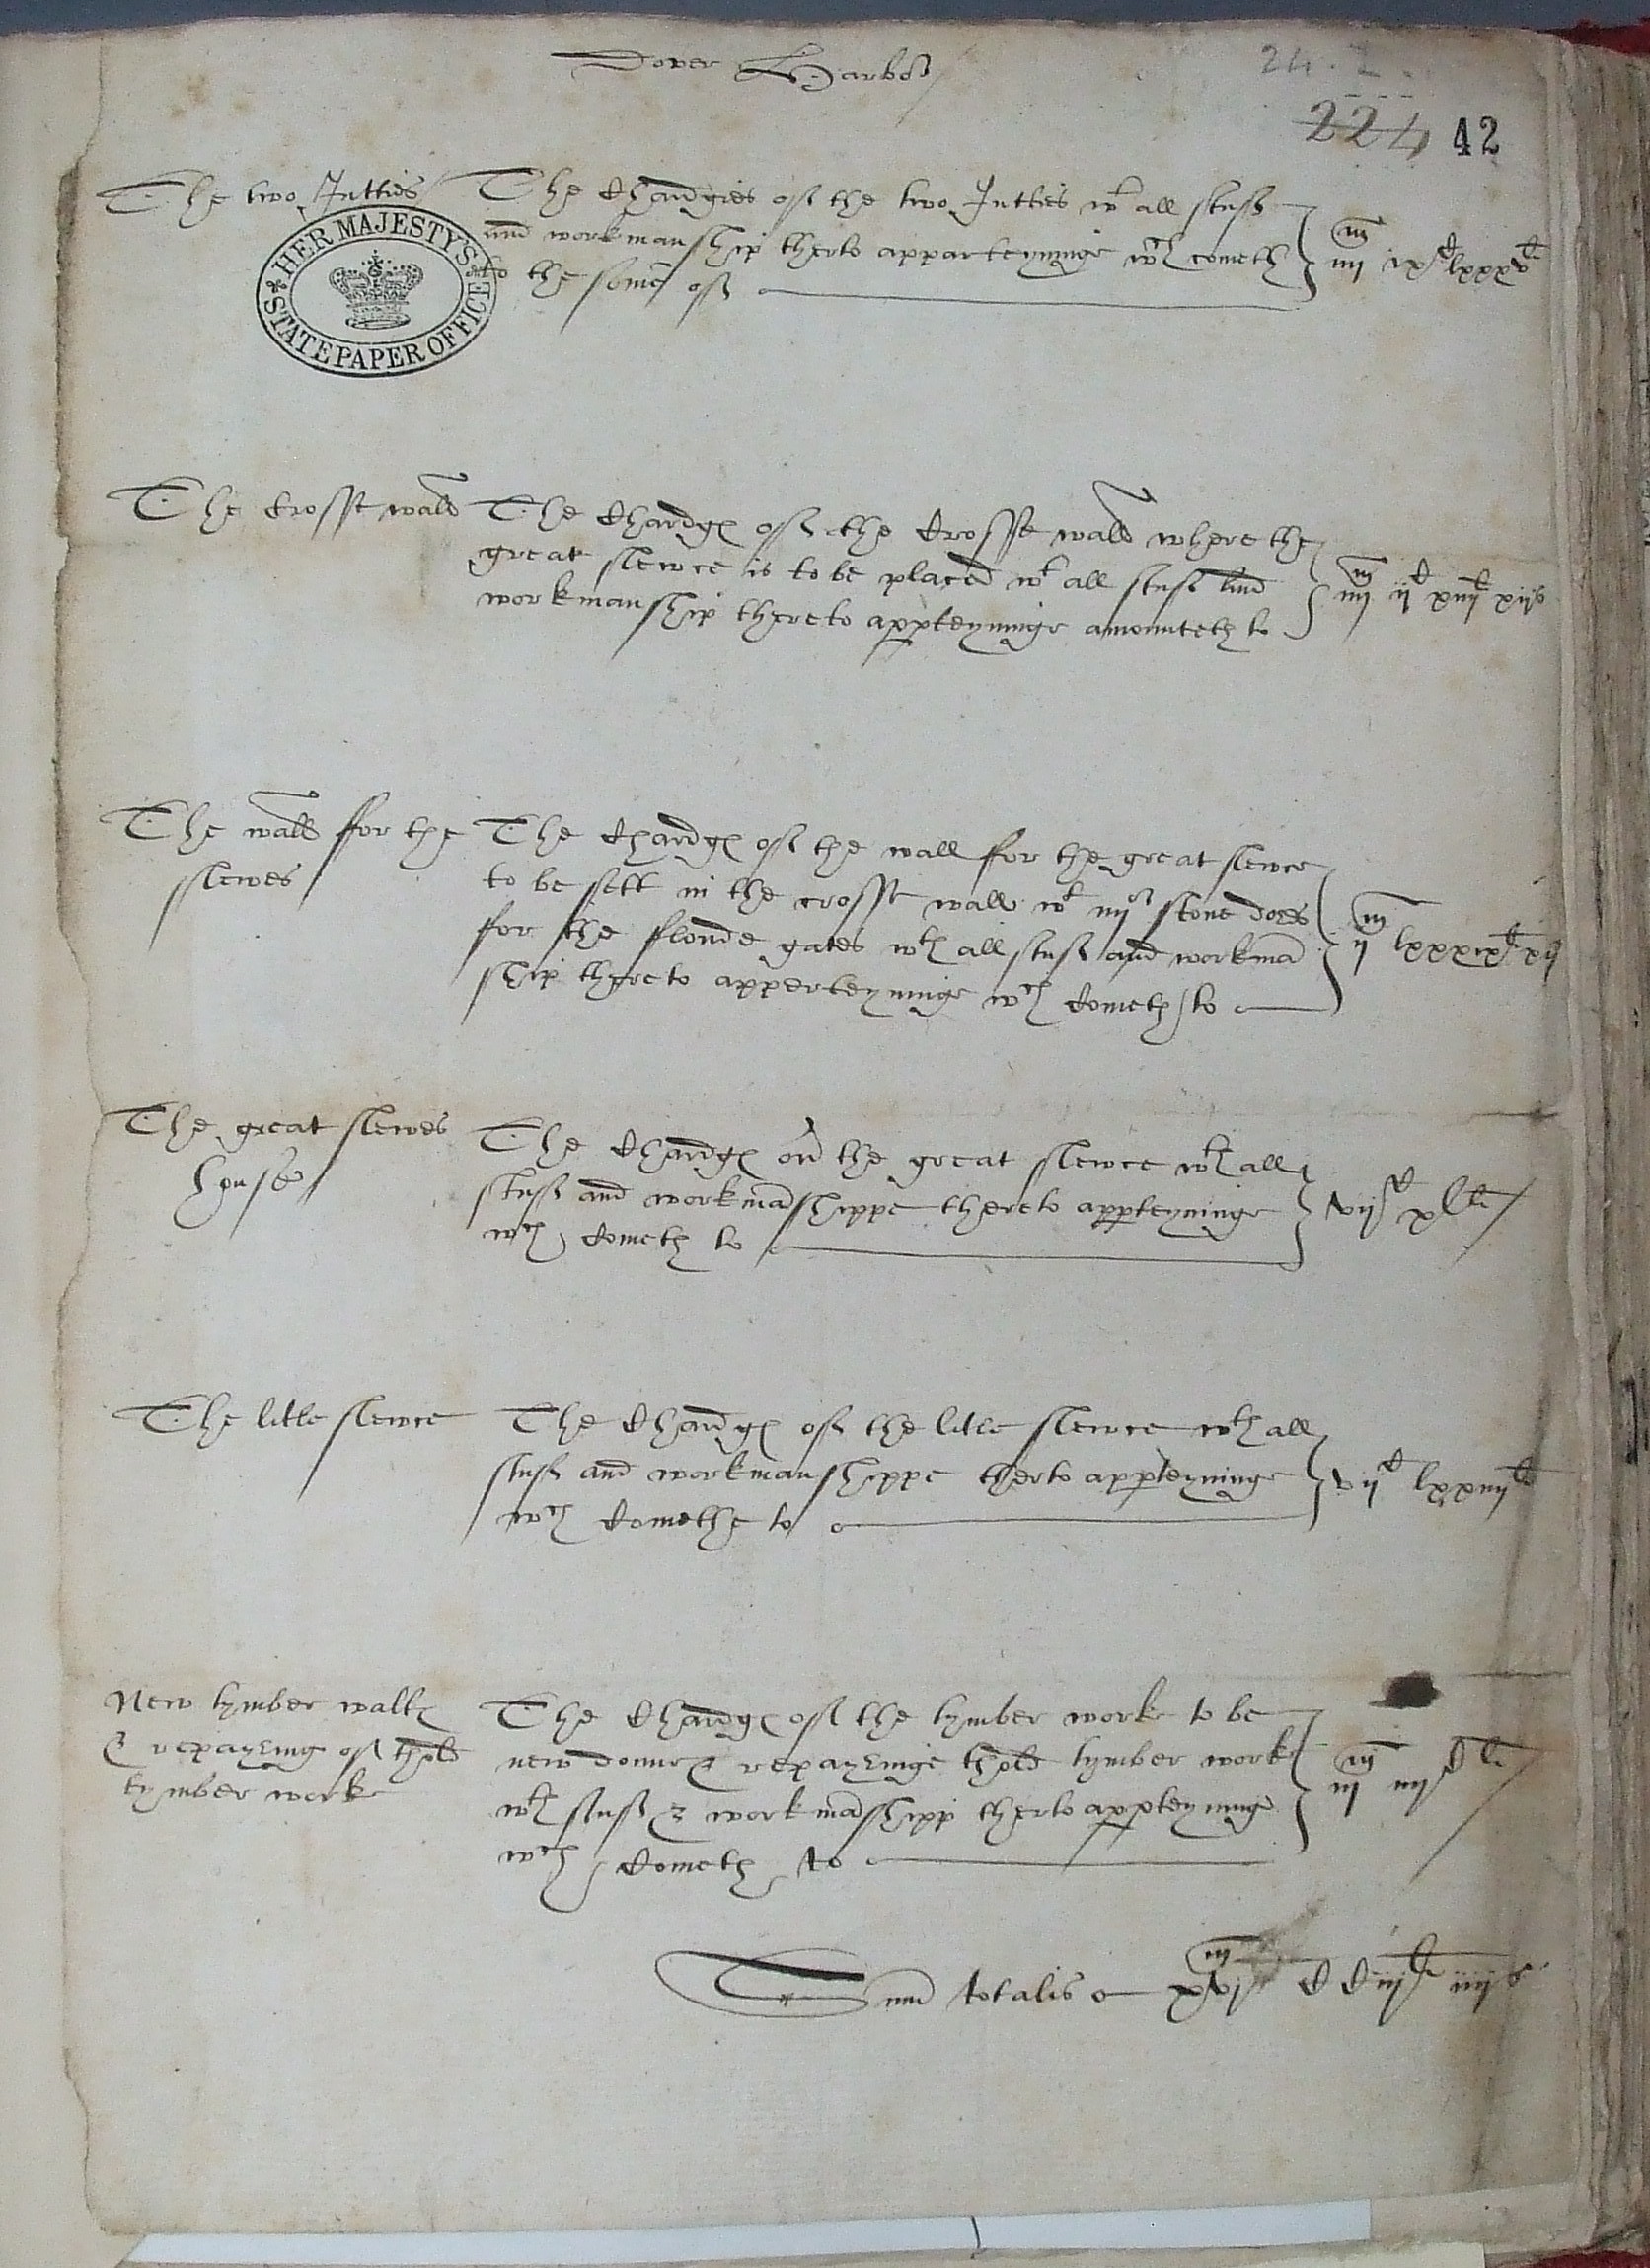 Dover Harbor
24. I.
224 42
The two Jutties
The Chardgies off the two Jutties wt all stuff
and workmanship therto apparteyninge wch cometh
to the some off
iiij m ix c lxxx li
HER MAJESTY'S STATE PAPER OFFICE
The Crosse wall
The Chardges off the Crosse wall where the
great slewce is to be placed wt all stuff and
workmanship thereto apperteyninge amounteth to
iiij m ij c xiiij li xij s
The wall for the
slewes
The Chardges off the wall for the great slewce
to be sett in the crosse wall wt iiij or stone dores
for the floude gates wth all stuff and workman
ship thereto apperteyninge wch Cometh to
ij m lxxxix li xij
The great slewes
house
The Chardges on the great slewce wth all
stuff and workmanshippe thereto apperteyninge
wch Cometh to
vij c xl li
The litle slewce
The Chardges off the litle slewce wth all
stuff and workmanshippe therto apperteyninge
wch Comethe to
vij c lxxiiij li
New tymber walles
& repayring off thold
tymber worke
The Chardges off the tymber worke to be
new donne & repayringe thold tymber worke
wth stuff & workmanshipp therto apperteyninge
wch Cometh to
iij m iiij c li
Summa totalis xvj m C C iij li iiij s